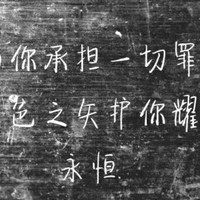 你承担一切罪
色之矢护你耀
永恒